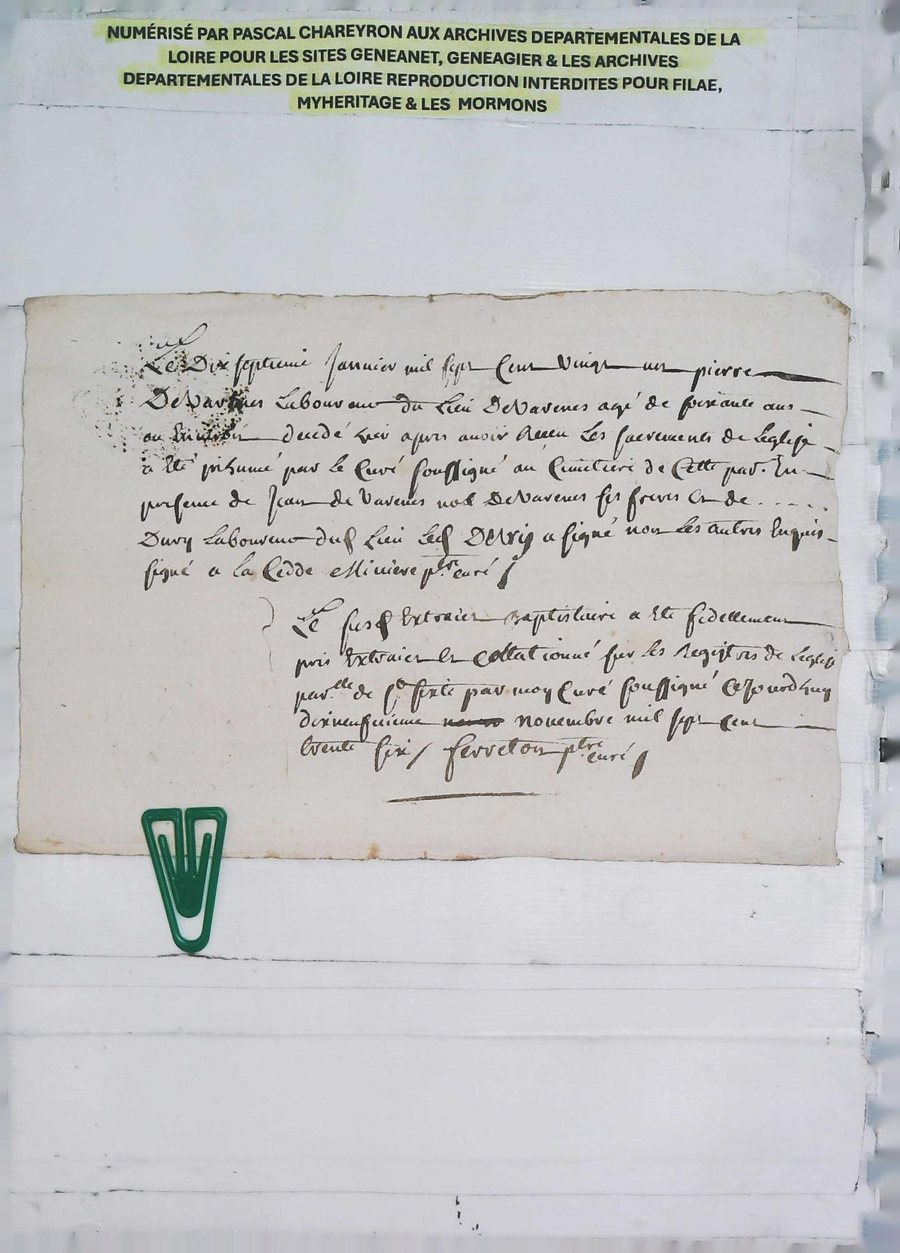 NUMÉRISÉ PAR PASCAL CHAREYRON AUX ARCHIVES DEPARTEMENTALES DE LA
LOIRE POUR LES SITES GENEANET, GENEAGIER & LES ARCHIVES
DEPARTEMENTALES DE LA LOIRE REPRODUCTION INTERDITES POUR FILAE,
MYHERITAGE & LES MORMONS
Le Dix septieme Janvier mil sept Cent vingt un pierre
DeVarenes Laboureur du Lieu DeVarenes agé de soixante ans
ou Environ decedé hier apres avoir Receu Les sacrements de Leglise
a eté inhumé par le Curé soussigné au Cimetiere de Cette par. En
presence de Jean de Varenes DeVarenes ses freres et de
Dury Laboureur dud Lieu Led a signé non Les autres Enquis
signé a la Cedde Miniere ptre curé
Le susd Extraict Baptistaire a eté fidellement
pris Extraict et Collationné sur les Registres de Leglise
par.lle de st sixte par moy Curé soussigné Cejourdhuy
dixneufvieme novembre mil sept Cent
trente six / ferreton ptre curé